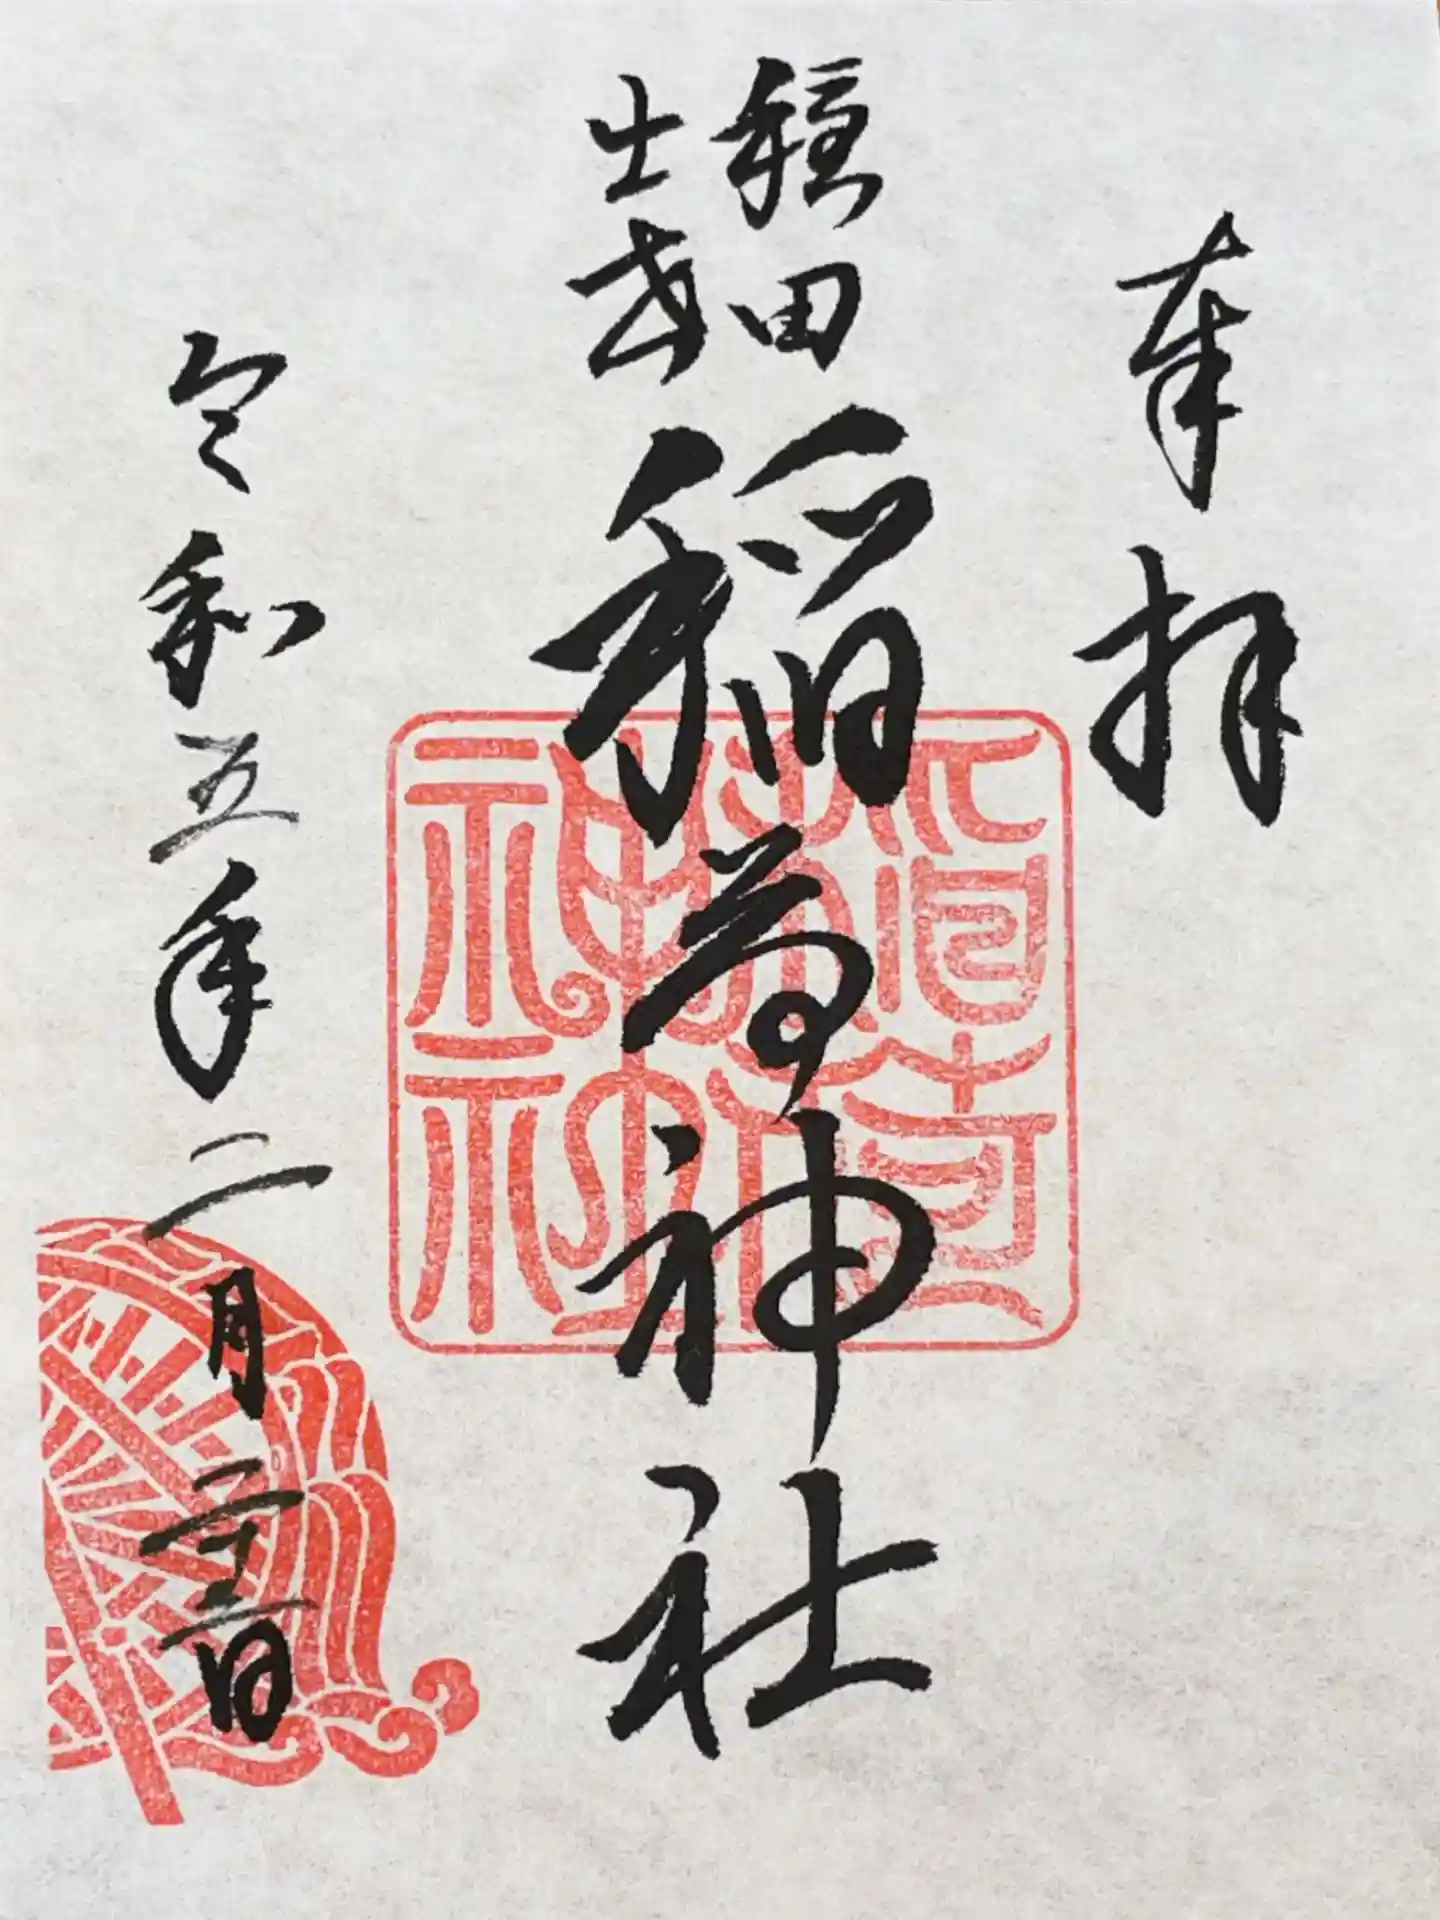 奉拝
出世
稲荷神社
令和五年二月二十三日
稲荷神社